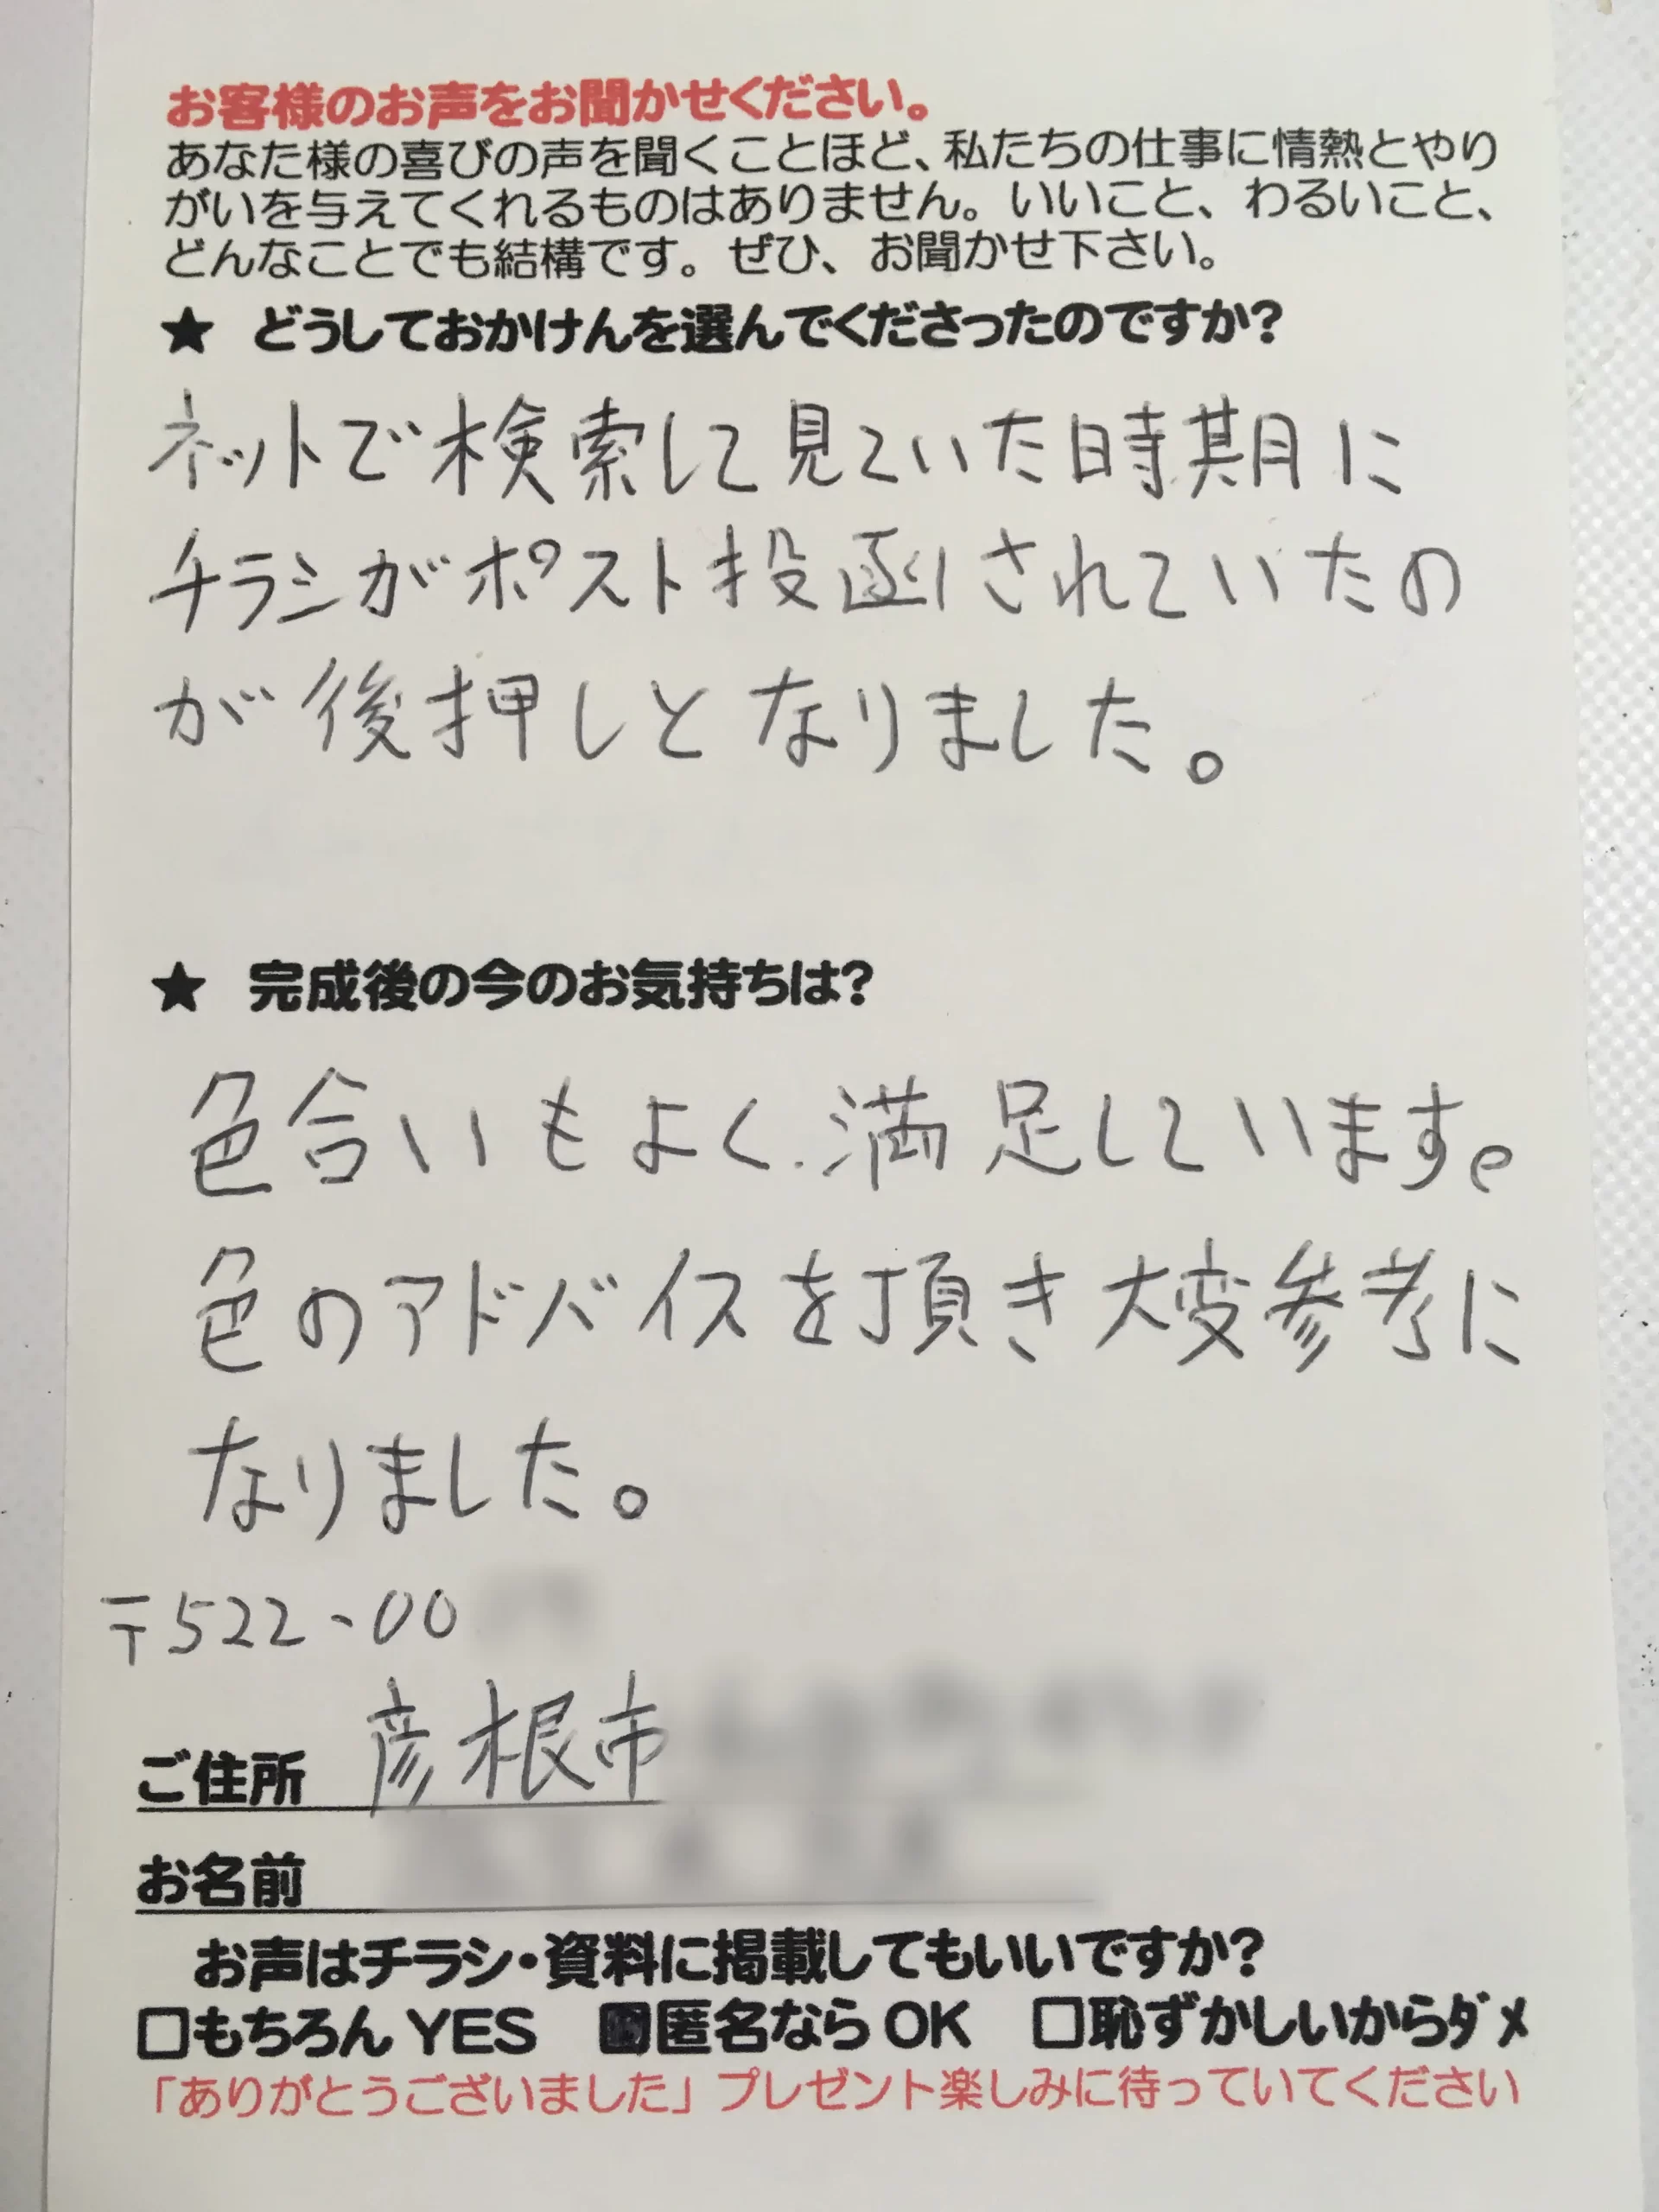 お客様のお声をお聞かせください。
あなた様の喜びの声を聞くことほど、私たちの仕事に情熱とやり
がいを与えてくれるものはありません。いいこと、わるいこと、
どんなことでも結構です。ぜひ、お聞かせ下さい。
★ どうしておかけんを選んでくださったのですか?
ネットで検索して見ていた時期に
チラシがポスト投函されていたの
が後押しとなりました。
★ 完成後の今のお気持ちは?
色合いもよく、満足しています。
色のアドバイスを頂き大変参考に
なりました。
〒522-00
ご住所 彦根市
お名前
お声はチラシ・資料に掲載してもいいですか?
□もちろんYES ■匿名ならOK □恥ずかしいからダメ
「ありがとうございました」プレゼント楽しみに待っていてください